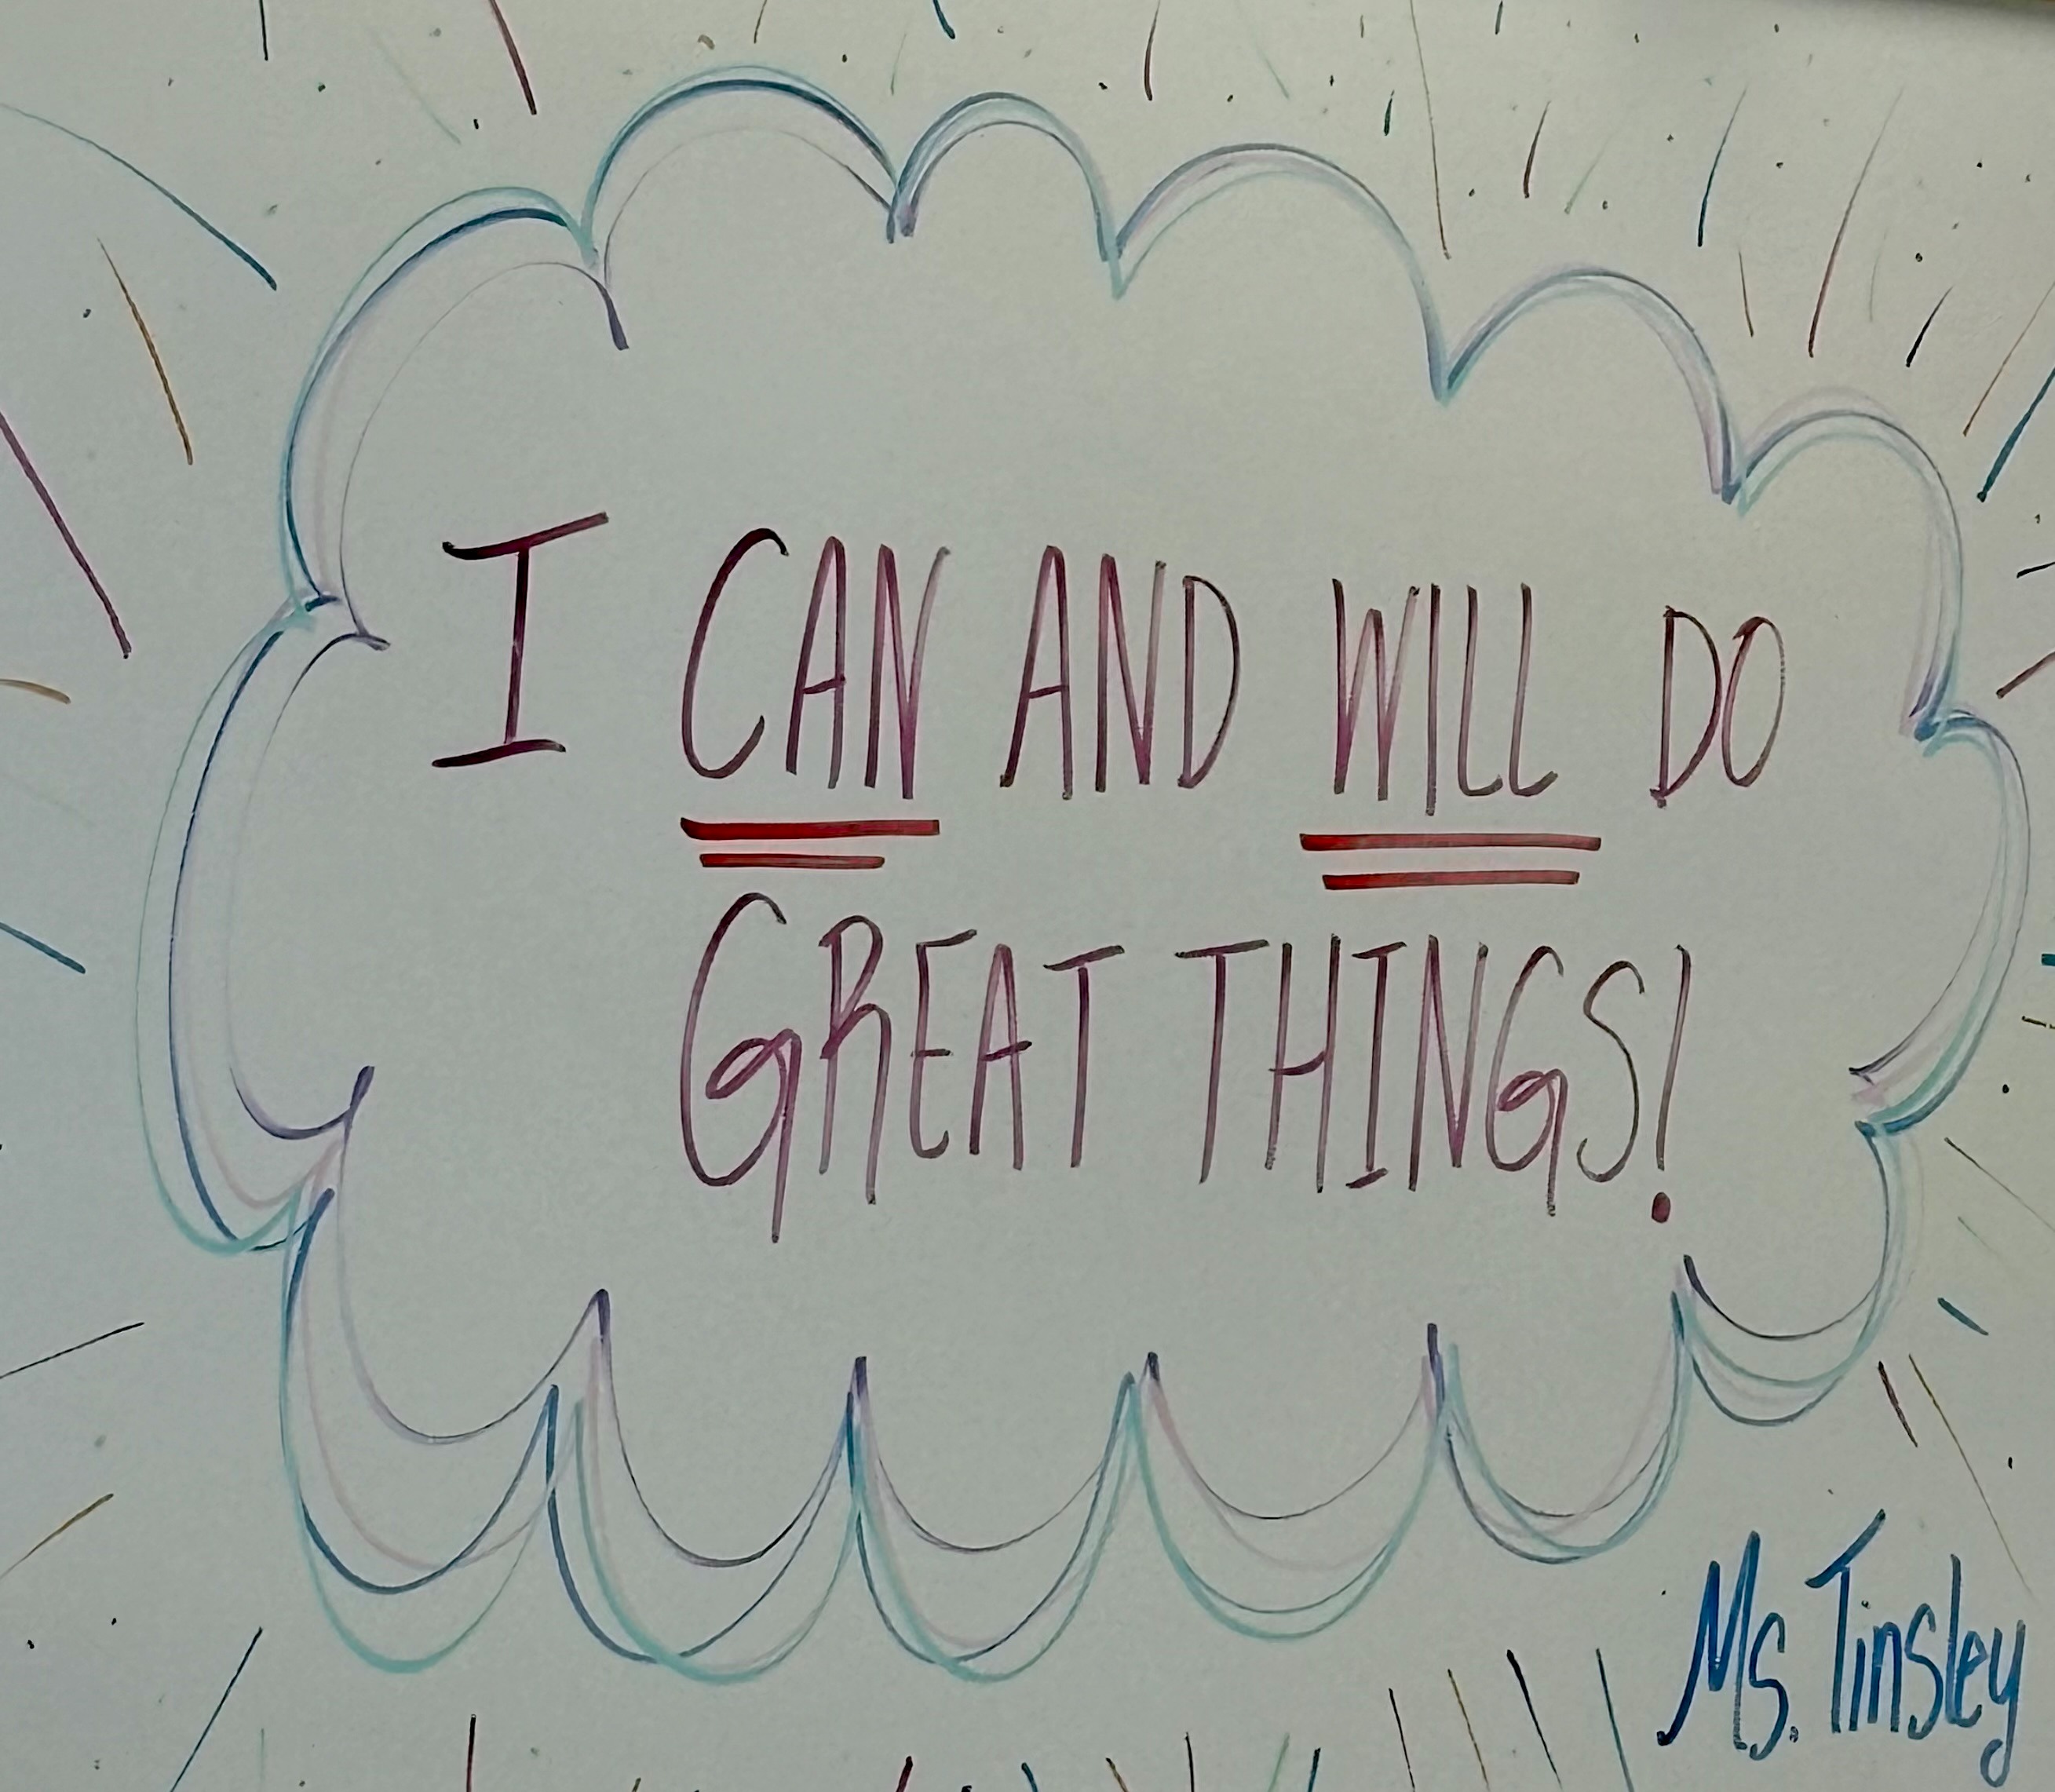 I CAN AND WILL DO
GREAT THINGS!
Ms. Tinsley